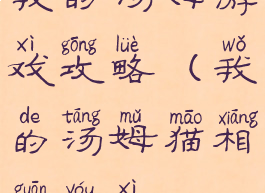 xì gōng lüè wǒ
戏攻略（我
de táng mǔ māo xiāng
的汤姆猫相
guān yóu xì